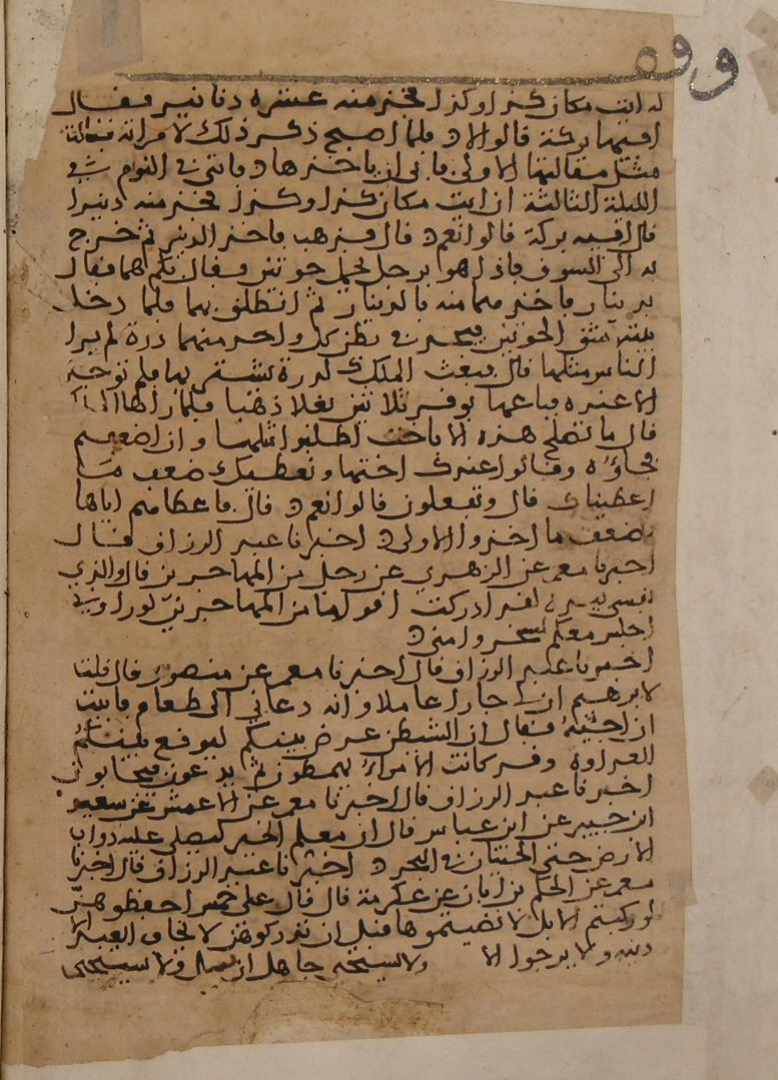 وقف
له ائت مكان كذا وكذا فخذ منه عشرة دنانير فقال
افيها بركة قالوا لا فلما اصبح ذكر ذلك لامراته فقالت
مثل مقالتها الاولى فابى ان ياخذها فاتي في النوم في
الليلة الثالثة ان ائت مكان كذا وكذا فخذ منه دينرا
قال افيه بركة قالوا نعم قال فذهب فاخذ الدينر ثم خرج
به الى السوق فاذا هو برجل يحمل حوتين فقال بكم هما فقال
بدينار فاخذهما منه بالدينار ثم انطلق بهما فلما دخل
بيته شق الحوتين فيجد في بطن كل واحد منهما درة لم يرا
الناس مثلها قال فبعث الملك لدرة يشتريها فلم توجد
الا عنده فباعها بوقر ثلاثين بغلا ذهبا فلما راها الملك
قال ما تصلح هذه الا باخت اطلبوا مثلها وان اضعفتم
فجاؤه وقالوا عندك اختها ونعطيك ضعف ما
اعطيناك قال وتفعلون قالوا نعم قال فاعطاهم اياها
بضعف ما اخذوا الاولى اخبرنا عبد الرزاق قال
اخبرنا معمر عن الزهري عن رجل من المهاجرين قال والذي
نفسي بيده لقد ادركت اقواما من المهاجرين لو راوني
اجلس معكم لسخروا مني
اخبرنا عبد الرزاق قال اخبرنا معمر عن منصور قال قلت
لابرهيم ان لي جارا عاملا وانه دعاني الى طعام فابيت
ان اجيبه فقال ان الشيطن عرض بينكم ليوقع بينكم
العداوة وقد كانت الامراء يهمطون ثم يدعون فيجابون
اخبرنا عبد الرزاق قال اخبرنا معمر عن الاعمش عن سعيد
ابن جبير عن ابن عباس قال ان معلم الخير لتصلي عليه دواب
الارض حتى الحيتان في البحر اخبرنا عبد الرزاق قال اخبرنا
معمر عن الحكم بن ابان عن عكرمة قال قال علي خمس احفظوهن
لو ركبتم الابل لانضيتموها قبل ان تدركوهن لا يخاف العبد الا
ذنبه ولا يرجوا الا ولا يستحي جاهل ان يسال ولا يستحي